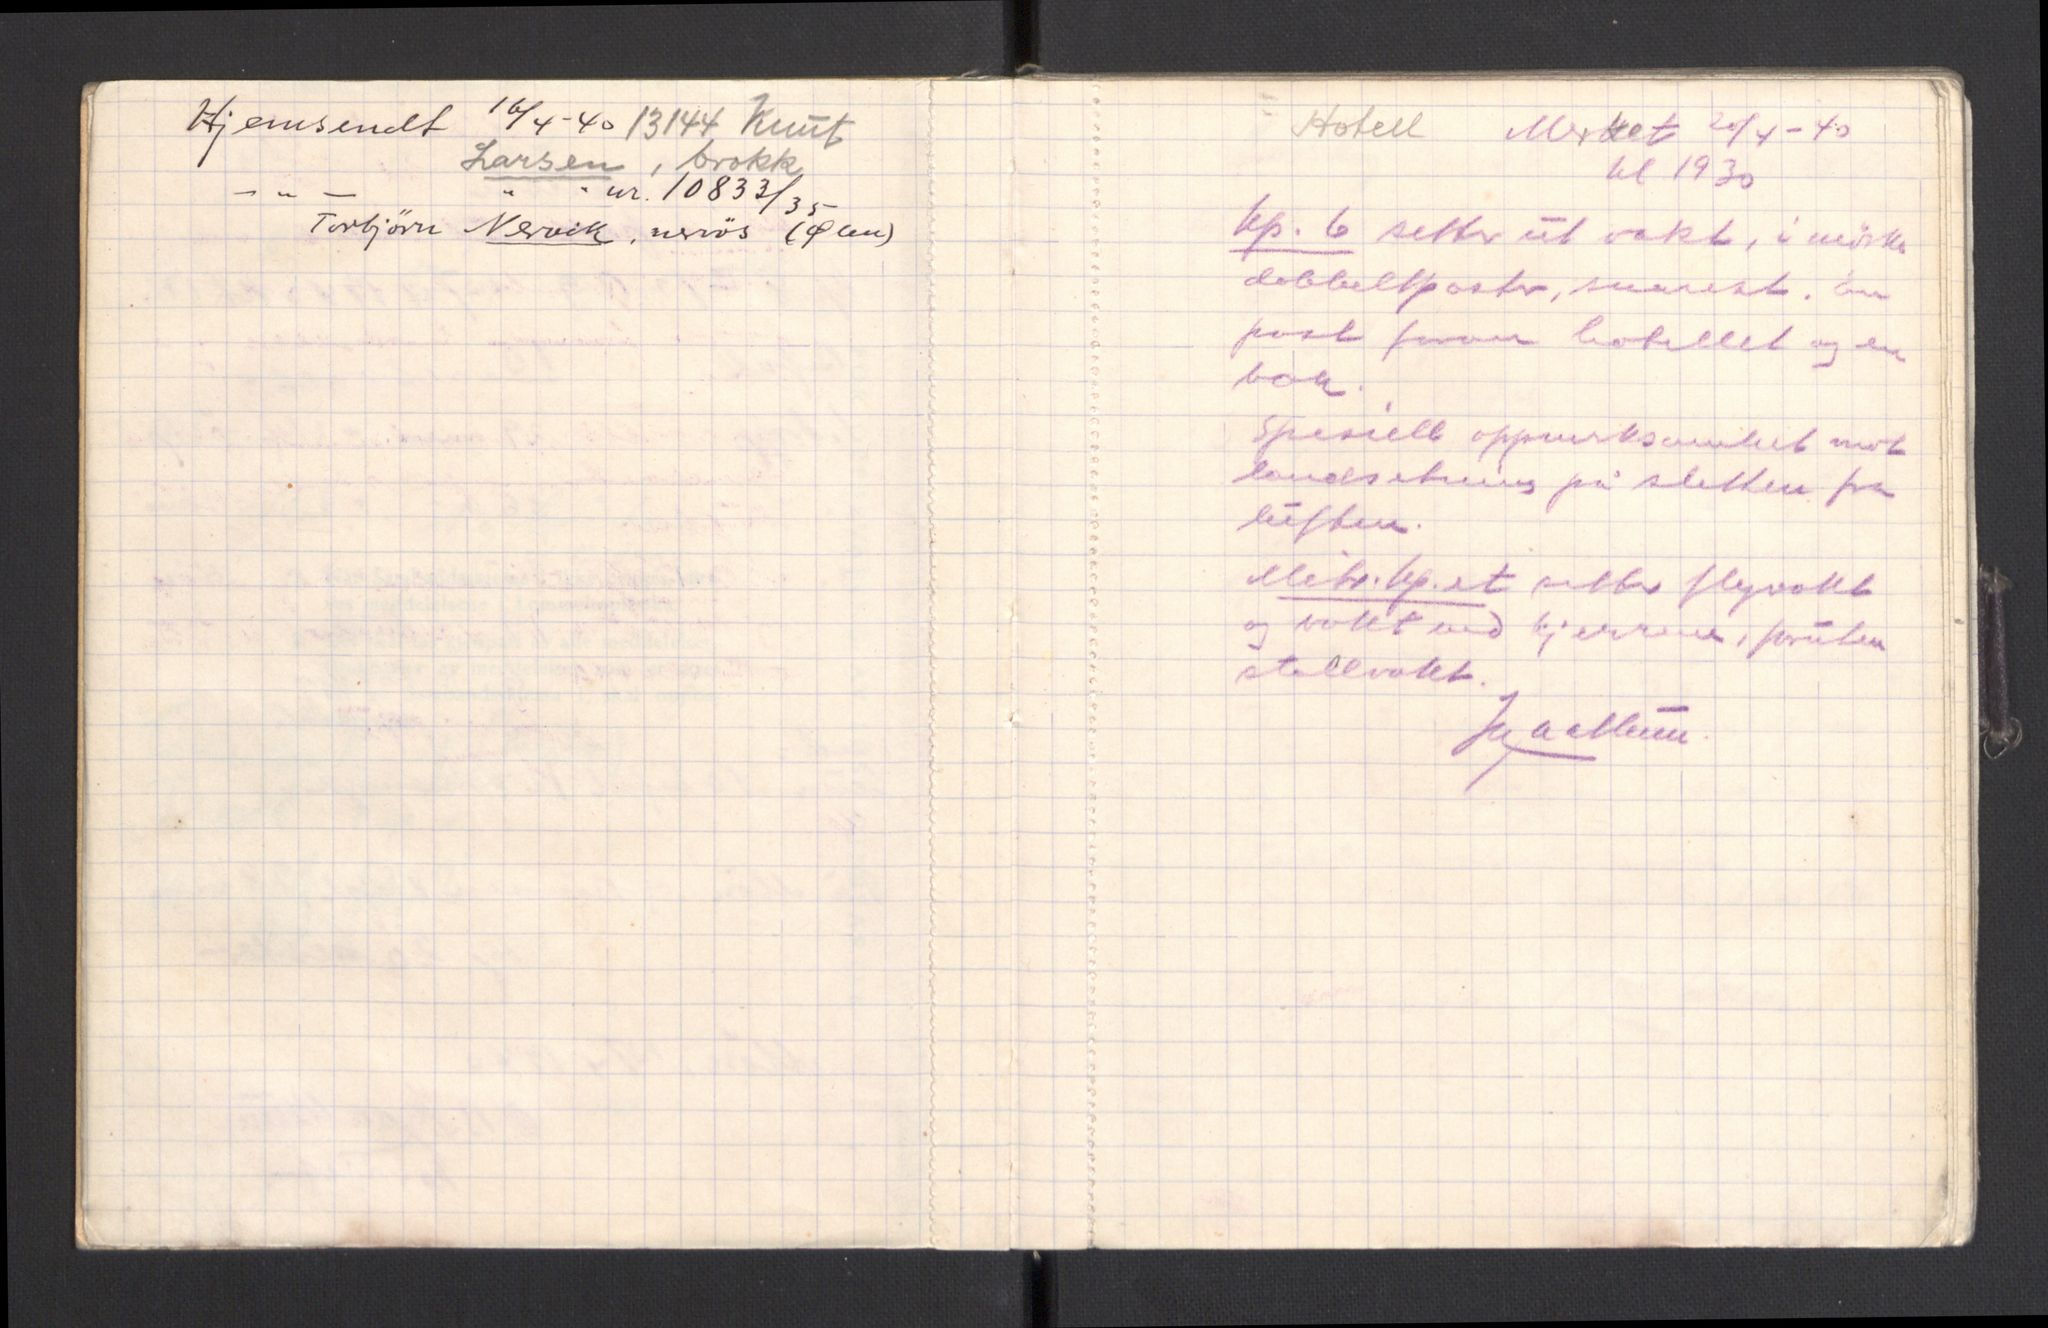 Hjemsendt 16/4-40 13144 Knut
Larsen, brokk
— " — " " nr. 10833/35
Torbjörn Nervik, nervös
Hotell Merket 20/4-40
kl 1930
Kp. 6 setter ut vakt, i mörke
dobbeltposter, snarest. En
post foran hotellet og en
bak.
Spesiell oppmerksomhet mot
landsetning på sletten fra
luften.
Mitr.kp.et setter flyvakt
og vakt ved kjerrene, foruten
stallvakt.